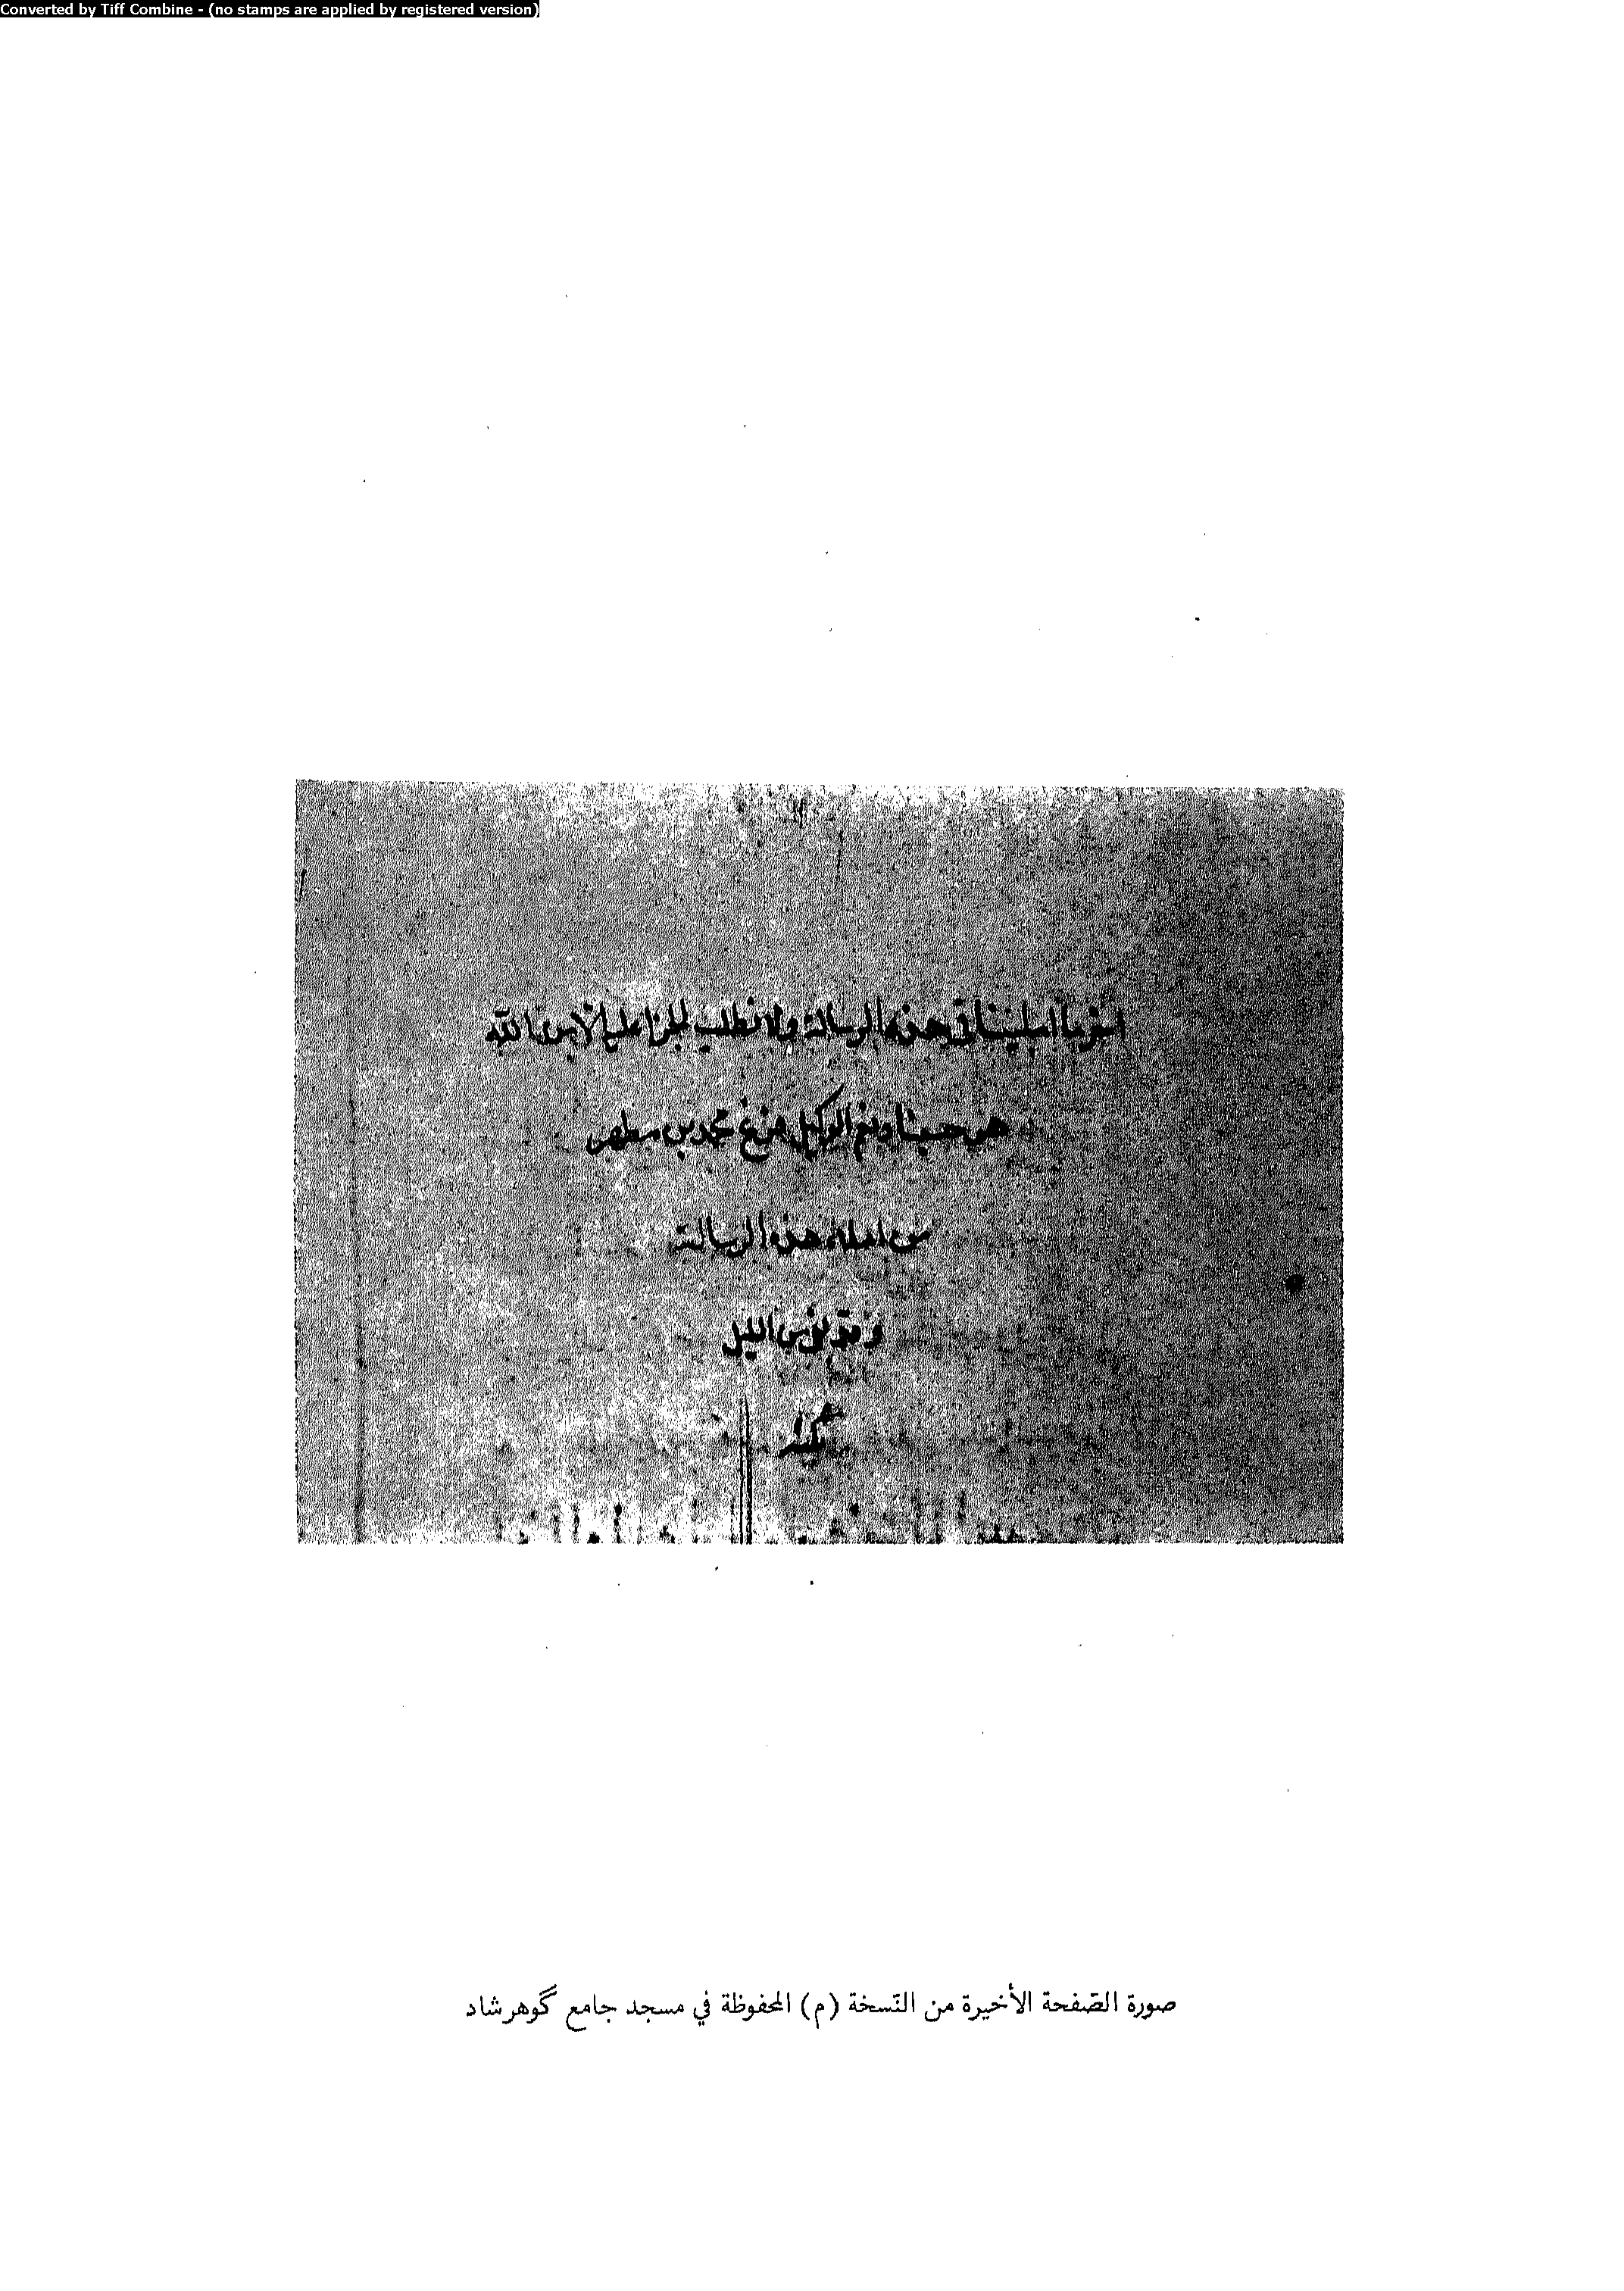 Converted by Tiff Combine - (no stamps are applied by registered version)
اخر ما املينا فى هذه الرسالة ولا نطلب الجزا عليه الا من الله
هو حسبنا ونعم الوكيل فرغ محمد بن مطهر
من املاء هذه الرسالة
الليل
صورة الصّفحة الأخيرة من النّسخة (م) المحفوظة في مسجد جامع گوهرشاد